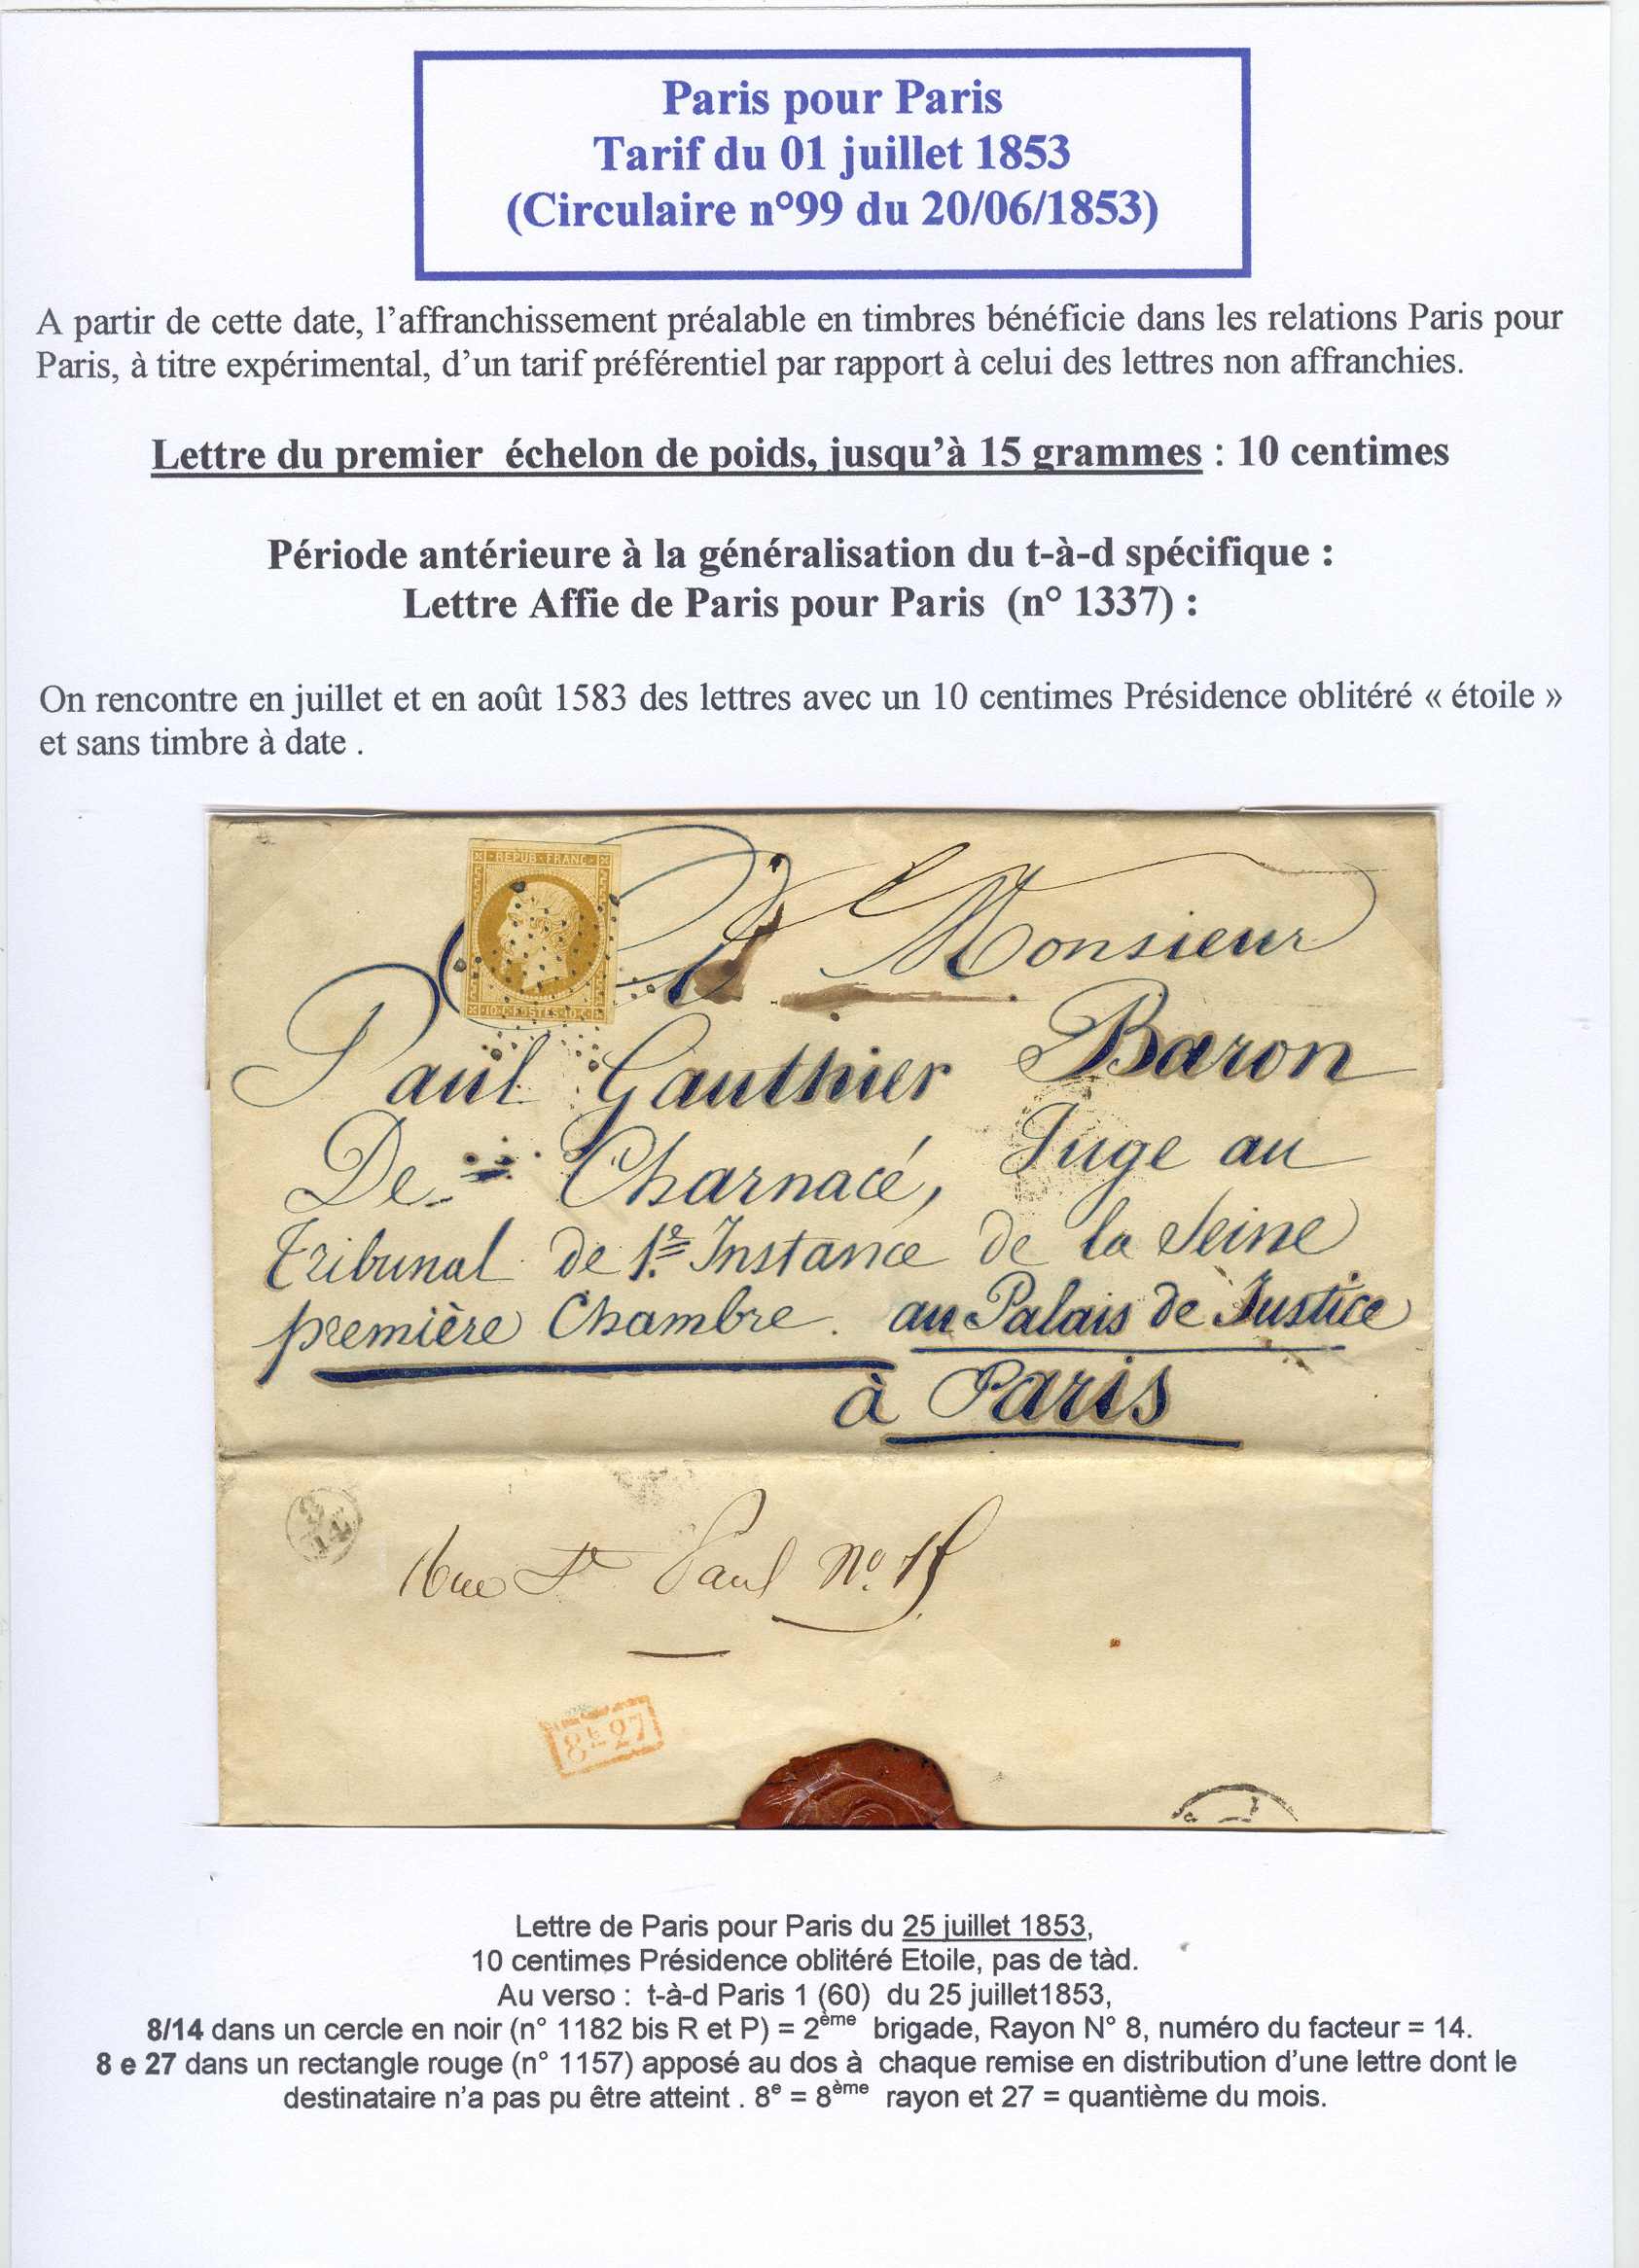 Paris pour Paris
Tarif du 01 juillet 1853
(Circulaire n°99 du 20/06/1853)
A partir de cette date, l’affranchissement préalable en timbres bénéficie dans les relations Paris pour
Paris, à titre expérimental, d’un tarif préférentiel par rapport à celui des lettres non affranchies.
Lettre du premier échelon de poids, jusqu’à 15 grammes : 10 centimes
Période antérieure à la généralisation du t-à-d spécifique :
Lettre Affie de Paris pour Paris (n° 1337) :
On rencontre en juillet et en août 1583 des lettres avec un 10 centimes Présidence oblitéré « étoile »
et sans timbre à date .
REPUB·FRANC·
10·C·POSTES·10·C·
A Monsieur
Paul Gauthier Baron
De Charnacé, Juge au
tribunal de 1re Instance de la Seine
première Chambre. au Palais de Justice
à Paris
Rue St Paul No. 15
8E 27
Lettre de Paris pour Paris du 25 juillet 1853,
10 centimes Présidence oblitéré Etoile, pas de tàd.
Au verso : t-à-d Paris 1 (60) du 25 juillet1853,
8/14 dans un cercle en noir (n° 1182 bis R et P) = 2ème brigade, Rayon N° 8, numéro du facteur = 14.
8 e 27 dans un rectangle rouge (n° 1157) apposé au dos à chaque remise en distribution d’une lettre dont le
destinataire n’a pas pu être atteint . 8e = 8ème rayon et 27 = quantième du mois.